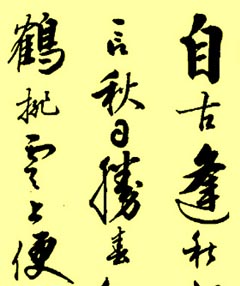 自古逢秋
言秋日勝春
鶴排雲上便